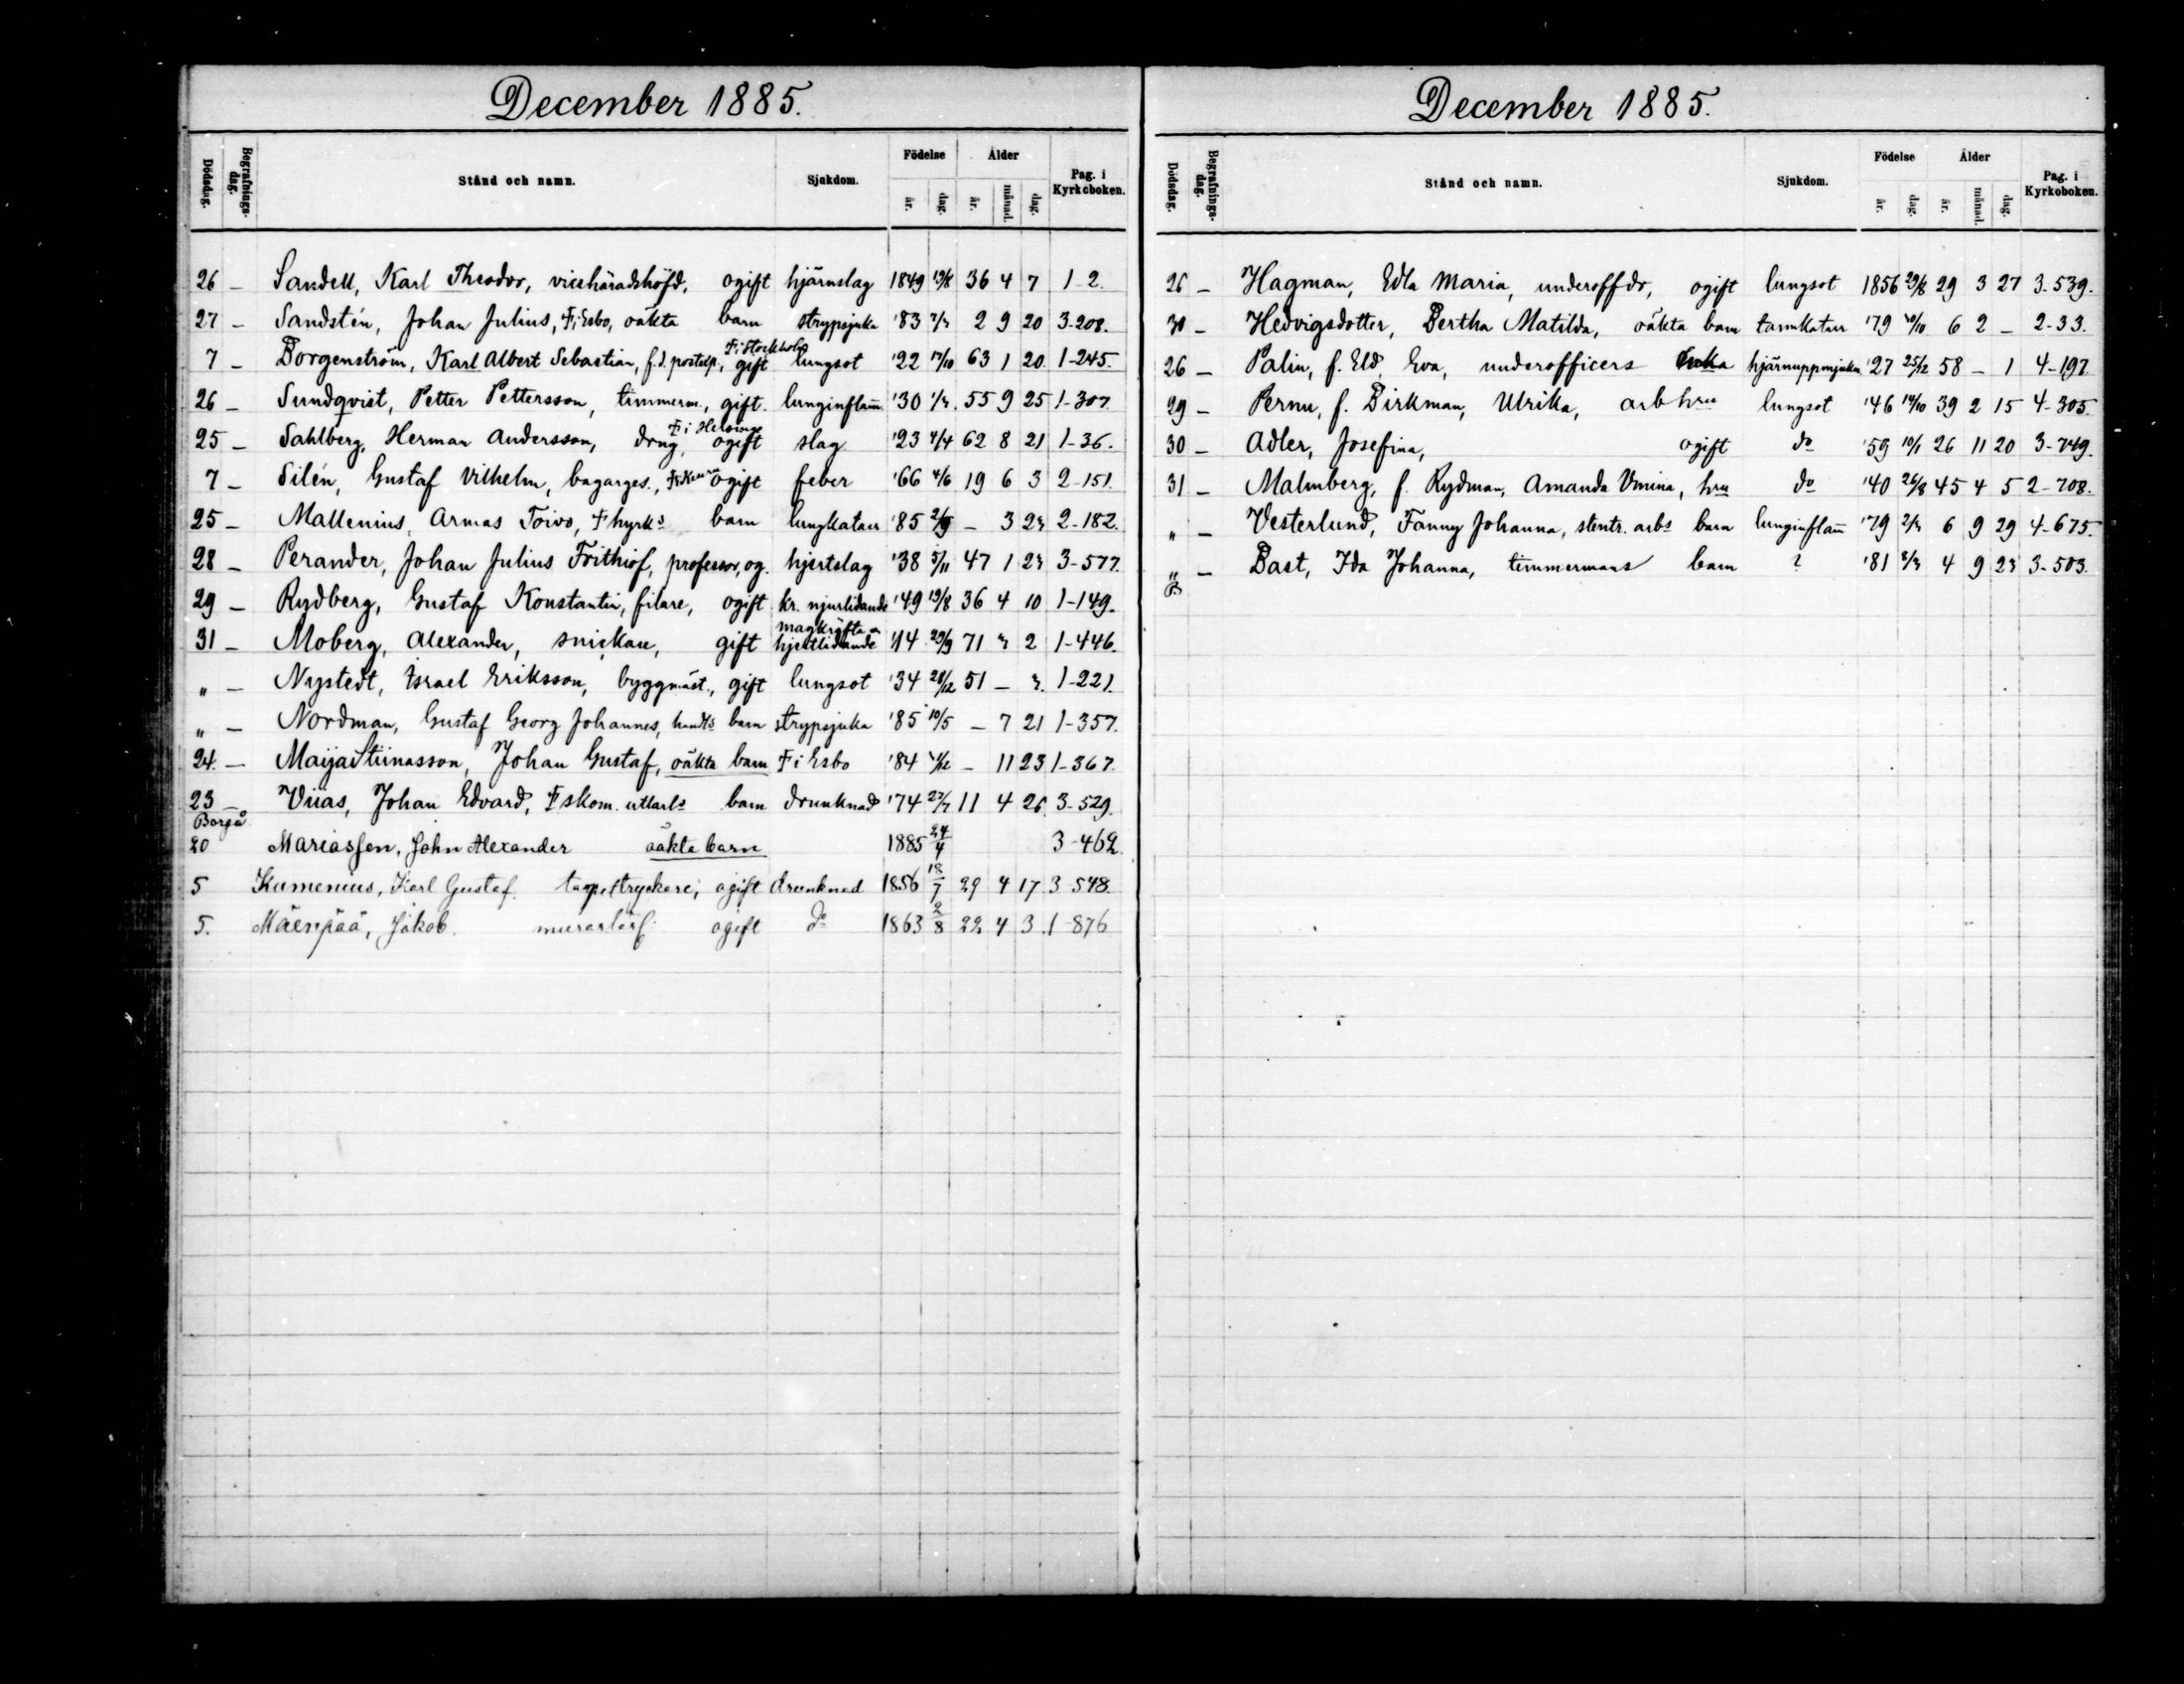 December 1885.
Dödsdag. Begrafnings-dag. Stånd och namn. Sjukdom. Födelse år. dag. Ålder år. månad. dag. Pag. i Kyrkoboken.
26 — Sandell, Karl Theodor, vicehäradshöfd, ogift hjärnslag 1849 19/8 36 4 7 1-2.
27 — Sandstén, Johan Julius, † i Esbo, oäkta barn strypsjuka '83 7/3 2 9 20 3-208.
† i Stockholm
7 — Borgenström, Karl Albert Sebastian, f.d. postexp., gift lungsot '22 17/10 63 1 20. 1-245.
26 — Sundqvist, Petter Pettersson, timmerm., gift. lunginflam̄. '30 1/3. 55 9 25 1-307.
† i Helsinge
25 — Sahlberg, Herman Andersson, dräng, ogift slag '23 4/4 62 8 21 1-36.
7 — Silén, Gustaf Vilhelm, bagarges., ogift feber '66 4/6 19 6 3 2-151.
25 — Mallenius, Armas Toivo, † hyrks barn lungkatarr '85 2/9 — 3 23 2-182.
28 — Perander, Johan Julius Frithiof, professor, og. hjertslag '38 5/11 47 1 23 3-577.
29 — Rydberg, Gustaf Konstantin, filare, ogift kr. njurlidande '49 19/8 36 4 10 1-149.
magkräfta o
31 — Moberg, Alexander, snickare, gift hjertlidande '14 29/9 71 3 2 1-446.
„ — Nystedt, Israel Eriksson, byggmäst., gift lungsot '34 28/12 51 — 3. 1-221.
„ — Nordman, Gustaf Georg Johannes, handls barn strypsjuka '85 10/5 — 7 21 1-357.
24. — MaijaStiinasson, Johan Gustaf, oäkta barn † i Esbo '84 1/12 — 11 23 1-367.
23 — Viias, Johan Edvard, † skom. utlärls barn drunknad '74 27/7 11 4 26 3-529.
Borgå
20 Mariasson, John Alexander oäkta barn 1885 24/4 3-462.
5 Kumenius, Karl Gustaf. tapettryckare, ogift drunknad 1856 18/7 29 4 17 3-548.
5. Mäenpää, Jakob. murarlärl. ogift do 1863 2/8 22 4 3 1-876
December 1885.
Dödsdag. Begrafnings-dag. Stånd och namn. Sjukdom. Födelse år. dag. Ålder år. månad. dag. Pag. i Kyrkoboken.
26 — Hagman, Edla Maria, underoffdr, ogift lungsot 1856 29/8 29 3 27 3-539.
30 — Hedvigsdotter, Bertha Matilda, oäkta barn tarmkatarr '79 30/10 6 2 — 2-33.
26 — Palin, f. Eld, Eva, underofficers enka hjärnuppmjukn '27 25/12 58 — 1 4-197.
29 — Pernu, f. Birkman, Ulrika, arbhru lungsot '46 14/10 39 2 15 4-305.
30 — Adler, Josefina, ogift do '59 10/1 26 11 20 3-749.
31 — Malmberg, f. Rydman, Amanda Vmina, hru do '40 26/8 45 4 5 2-708.
„ — Vesterlund, Fanny Johanna, stentr. arbs barn lunginflam̄ '79 2/3 6 9 29 4-675.
„ — Bast, Ida Johanna, timmermans barn ? '81 8/3 4 9 23 3-503.